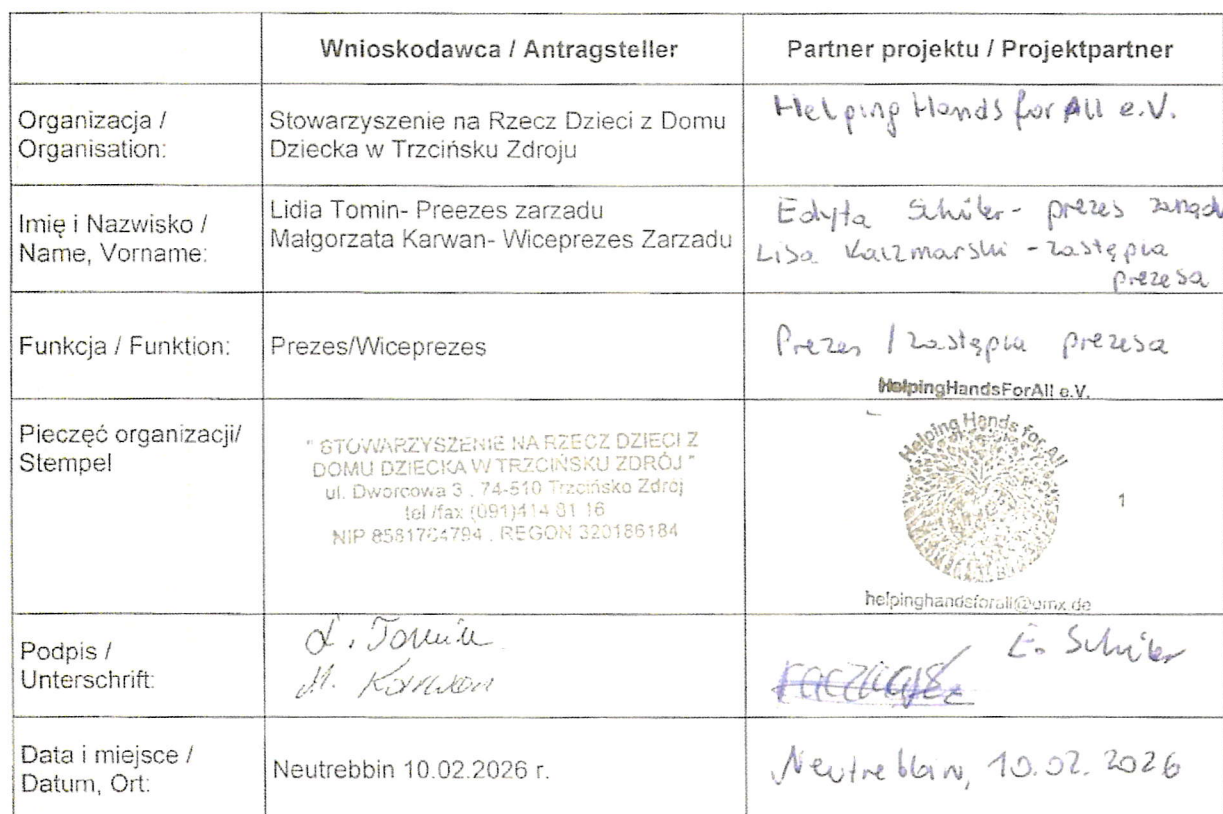 Wnioskodawca / Antragsteller
Partner projektu / Projektpartner
Organizacja /
Organisation:
Stowarzyszenie na Rzecz Dzieci z Domu
Dziecka w Trzcińsku Zdroju
Helping Hands for All e.V.
Imię i Nazwisko /
Name, Vorname:
Lidia Tomin- Preezes zarzadu
Małgorzata Karwan- Wiceprezes Zarzadu
Edyta Schüler - prezes zarządu
Lisa Kaczmarski - zastępca
prezesa
Funkcja / Funktion:
Prezes/Wiceprezes
Prezes / zastępca prezesa
Pieczęć organizacji/
Stempel
" STOWARZYSZENIE NA RZECZ DZIECI Z
DOMU DZIECKA W TRZCIŃSKU ZDRÓJ "
ul. Dworcowa 3 , 74-510 Trzcińsko Zdrój
tel /fax (091)414 81 16
NIP 8581764794 , REGON 320186184
HelpingHandsForAll e.V.
Helping Hands for All
1
helpinghandsforall@gmx.de
Podpis /
Unterschrift:
L. Tomin
M. Karwan
E. Schüler
Data i miejsce /
Datum, Ort:
Neutrebbin 10.02.2026 r.
Neutrebbin, 10.02.2026